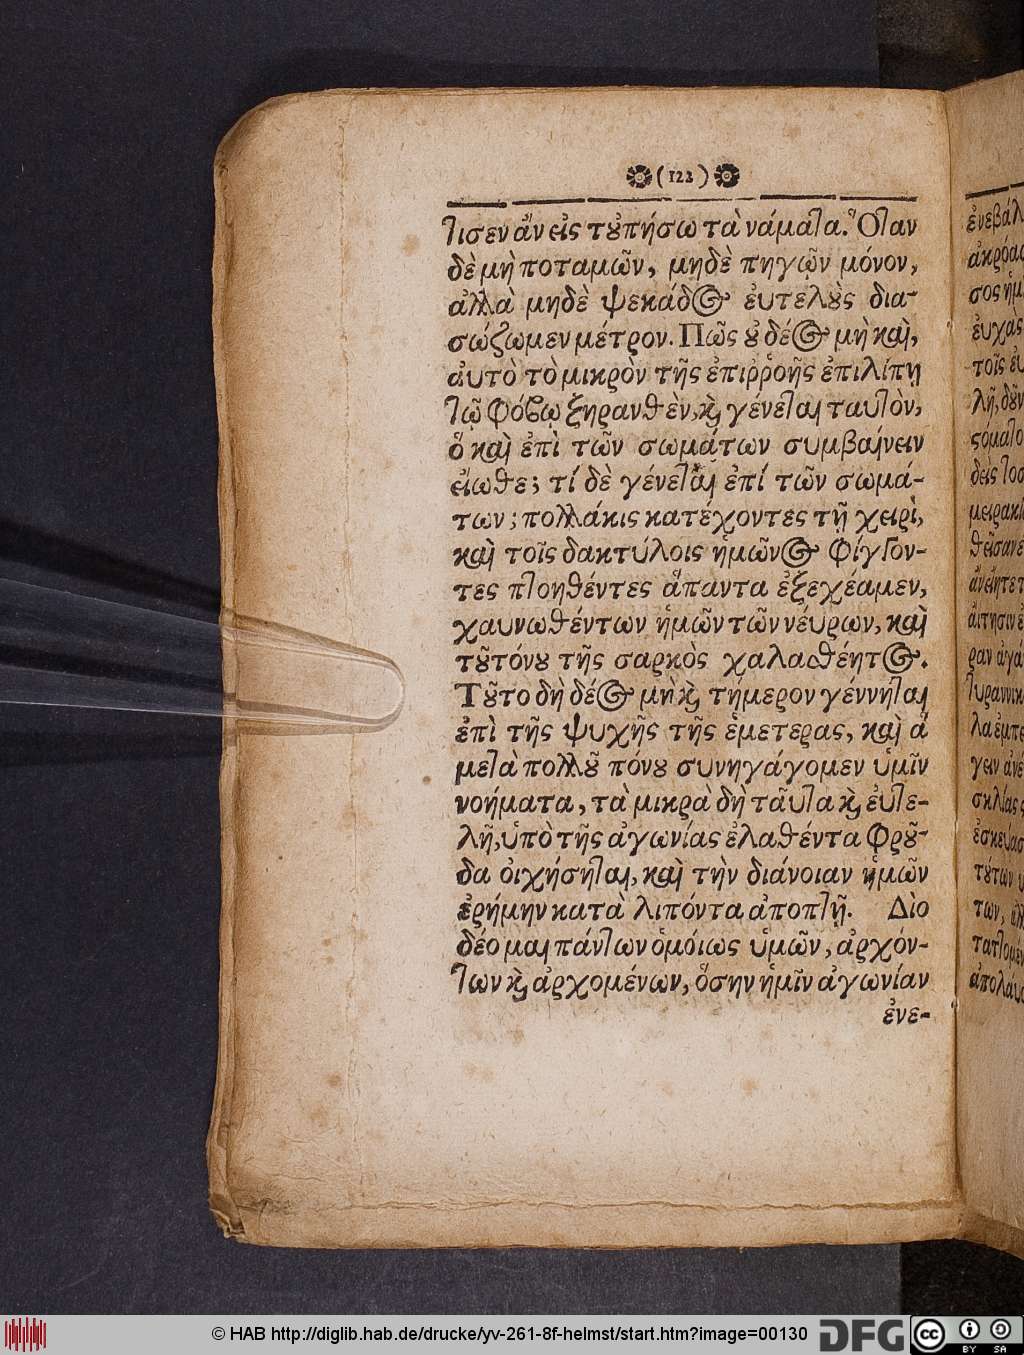 (122)
τισεν ἄν εἰς τοὐπήσω τὰ νάματα. Ὅταν
δὲ μὴ ποταμῶν, μηδὲ πηγῶν μόνον,
ἀλλὰ μηδὲ ψεκάδος ἐυτελοὺς δια-
σώζωμεν μέτρον. Πῶς οὐ δέος μὴ καὶ,
ἀυτὸ τὸ μικρὸν τῆς ἐπιῤῥοῆς ἐπιλίπῃ
τῷ φόβῳ ξηρανθὲν, καὶ γένεται ταυτὸν,
ὁ καὶ ἐπὶ τῶν σωμάτων συμβαίνειν
εἰωθε; τί δὲ γένεται ἐπί τῶν σωμά-
των; πολλάκις κατέχοντες τῇ χειρὶ,
καὶ τοῖς δακτύλοις ἡμῶνος φίγγον-
τες πτοηθέντες ἅπαντα ἐξεχέαμεν,
χαυνωθέντων ἡμῶν τῶν νέυρων, καὶ
τοῦ τόνου τῆς σαρκὸς χαλασθέητος.
Τοῦτο δὴ δέος μὴ καὶ τήμερον γέννηται
ἐπὶ τῆς ψυχῆς τῆς ἑμετερας, καὶ ἅ
μετὰ πολλοῦ πόνου συνηγάγομεν ὑμῖν
νοήματα, τὰ μικρὰ δὴ ταῦτα καὶ ἐυτε-
λῆ, ὑπὸ τῆς ἀγωνίας ἐλαθέντα φροῦ-
δα οἰχήσηται, καὶ τὴν διάνοιαν ἡμῶν
ἐρήμην κατὰ λιπόντα ἀποπτῇ. Διὸ
δέομαι πάντων ὁμόιως ὑμῶν, ἀρχόν-
των καὶ ἀρχομένων, ὅσην ἡμῖν ἀγωνίαν
ἐνε-
ἐνεβάλ
ἀκρόασ
σος ἡμ
ἐυχὰς
τοῖς ἐυ
λῆ, δοῦν
δεὶς τοσ
μειρακι
© HAB http://diglib.hab.de/drucke/yv-261-8f-helmst/start.htm?image=00130
DFG
cc
BY SA